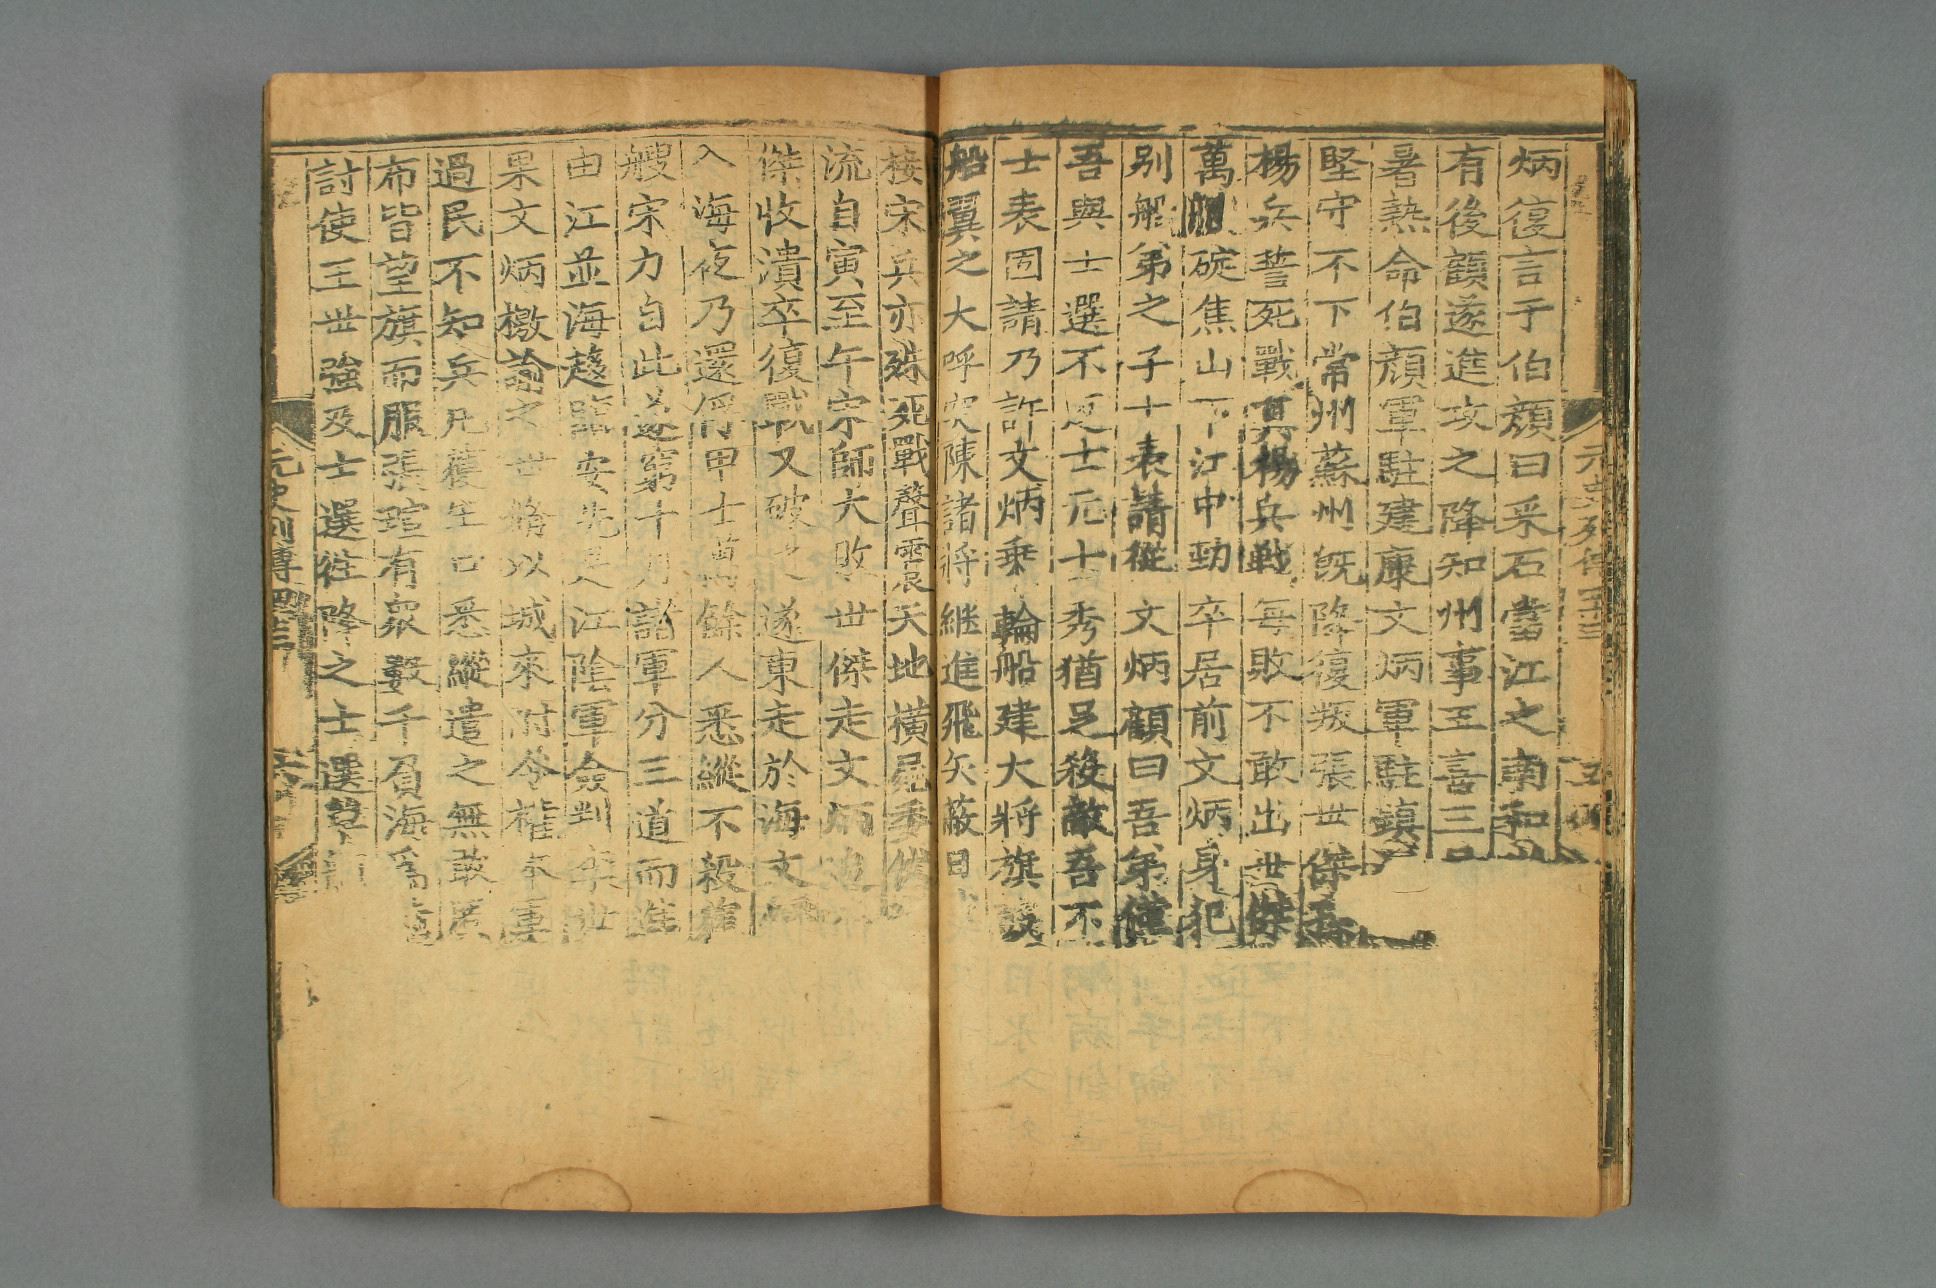 元史列傳
炳復言于伯顔曰采石當江之南和
有後顧遂進攻之降知州事王喜三
暑熱命伯顔軍駐建康文炳軍駐鎮
堅守不下常州蘇州既降復叛張世傑孫
楊兵誓死戰真楊兵戰每敗不敢出世傑
萬艘碇焦山下江中勁卒居前文炳身犯
别船弟之子士表請從文炳顧曰吾弟僅
吾與士選不返士元士秀猶足殺敵吾不
士表固請乃許文炳乗輪船建大將旗
船翼之大呼突陳諸將継進飛矢蔽日
接宋兵亦殊死戰聲震天地横屍委
流自寅至午宋師大敗世傑走文炳追
傑收潰卒復戰又破之遂東走於海文
入海夜乃還俘甲士萬餘人悉縱不殺
艘宋力自此遂窮十月諸軍分三道而進
由江並海趍臨安先是江陰軍僉判李世
果文炳檄諭之世脩以城來附令權本軍
過民不知兵凡獲生口悉縱遣之無敢
布皆望旗而服張瑄有衆數千負海爲
討使王世強及士選徃降之士選單
元史列傳